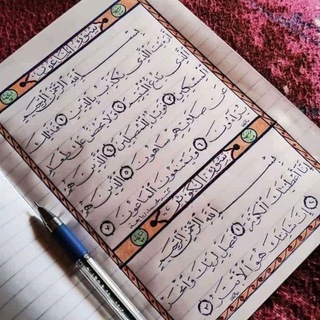 سورة الماعون
بسم الله الرحمن الرحيم
أرءيت الذى يكذب بالدين ١ فذلك
الذى يدع اليتيم ٢ ولا يحض على طعام
المسكين ٣ فويل للمصلين ٤ الذين هم
عن صلاتهم ساهون ٥ الذين هم
يراءون ٦ ويمنعون الماعون ٧
سورة الكوثر
بسم الله الرحمن الرحيم
إنا أعطينك الكوثر ١ فصل لربك وانحر ٢
إن شانئك هو الأبتر ٣